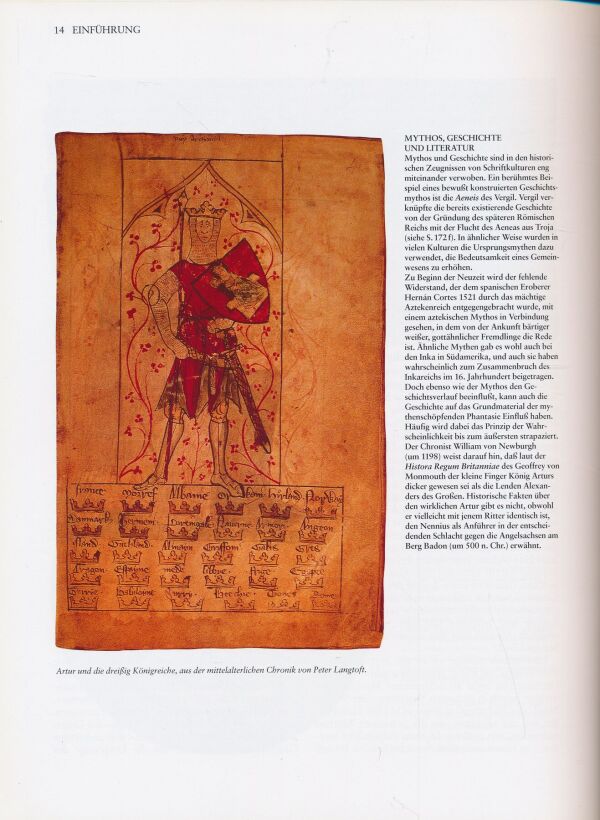 14 EINFÜHRUNG
MYTHOS, GESCHICHTE
UND LITERATUR
Mythos und Geschichte sind in den histori-
schen Zeugnissen von Schriftkulturen eng
miteinander verwoben. Ein berühmtes Bei-
spiel eines bewußt konstruierten Geschichts-
mythos ist die Aeneis des Vergil. Vergil ver-
knüpfte die bereits existierende Geschichte
von der Gründung des späteren Römischen
Reichs mit der Flucht des Aeneas aus Troja
(siehe S. 172 f). In ähnlicher Weise wurden in
vielen Kulturen die Ursprungsmythen dazu
verwendet, die Bedeutsamkeit eines Gemein-
wesens zu erhöhen.
Zu Beginn der Neuzeit wird der fehlende
Widerstand, der dem spanischen Eroberer
Hernán Cortes 1521 durch das mächtige
Aztekenreich entgegengebracht wurde, mit
einem aztekischen Mythos in Verbindung
gesehen, in dem von der Ankunft bärtiger
weißer, gottähnlicher Fremdlinge die Rede
ist. Ähnliche Mythen gab es wohl auch bei
den Inka in Südamerika, und auch sie haben
wahrscheinlich zum Zusammenbruch des
Inkareichs im 16. Jahrhundert beigetragen.
Doch ebenso wie der Mythos den Ge-
schichtsverlauf beeinflußt, kann auch die
Geschichte auf das Grundmaterial der my-
thenschöpfenden Phantasie Einfluß haben.
Häufig wird dabei das Prinzip der Wahr-
scheinlichkeit bis zum äußersten strapaziert.
Der Chronist William von Newburgh
(um 1198) weist darauf hin, daß laut der
Histora Regum Britanniae des Geoffrey von
Monmouth der kleine Finger König Arturs
dicker gewesen sei als die Lenden Alexan-
ders des Großen. Historische Fakten über
den wirklichen Artur gibt es nicht, obwohl
er vielleicht mit jenem Ritter identisch ist,
den Nennius als Anführer in der entschei-
denden Schlacht gegen die Angelsachsen am
Berg Badon (um 500 n. Chr.) erwähnt.
Artur und die dreißig Königreiche, aus der mittelalterlichen Chronik von Peter Langtoft.